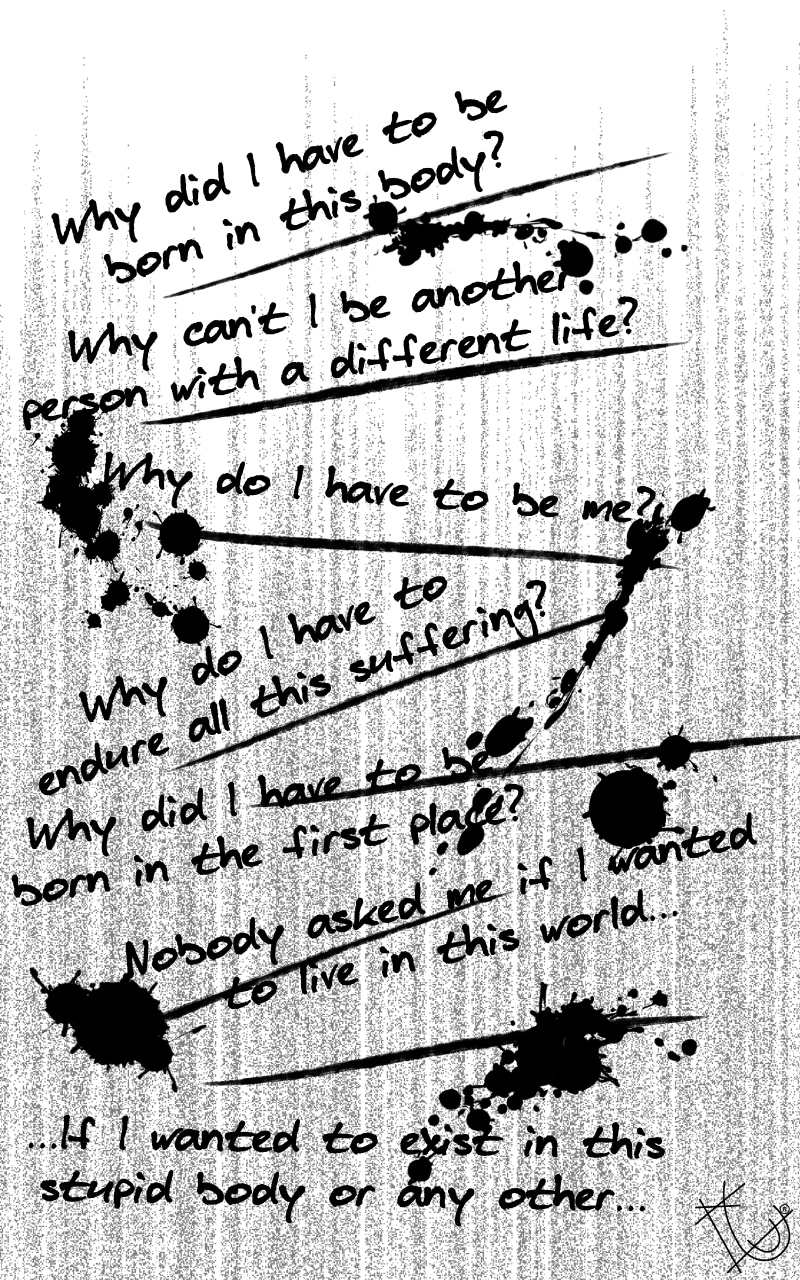 Why did I have to be
born in this body?
Why can't I be another
person with a different life?
Why do I have to be me?
Why do I have to
endure all this suffering?
Why did I have to be
born in the first place?
Nobody asked me if I wanted
to live in this world...
...If I wanted to exist in this
stupid body or any other...